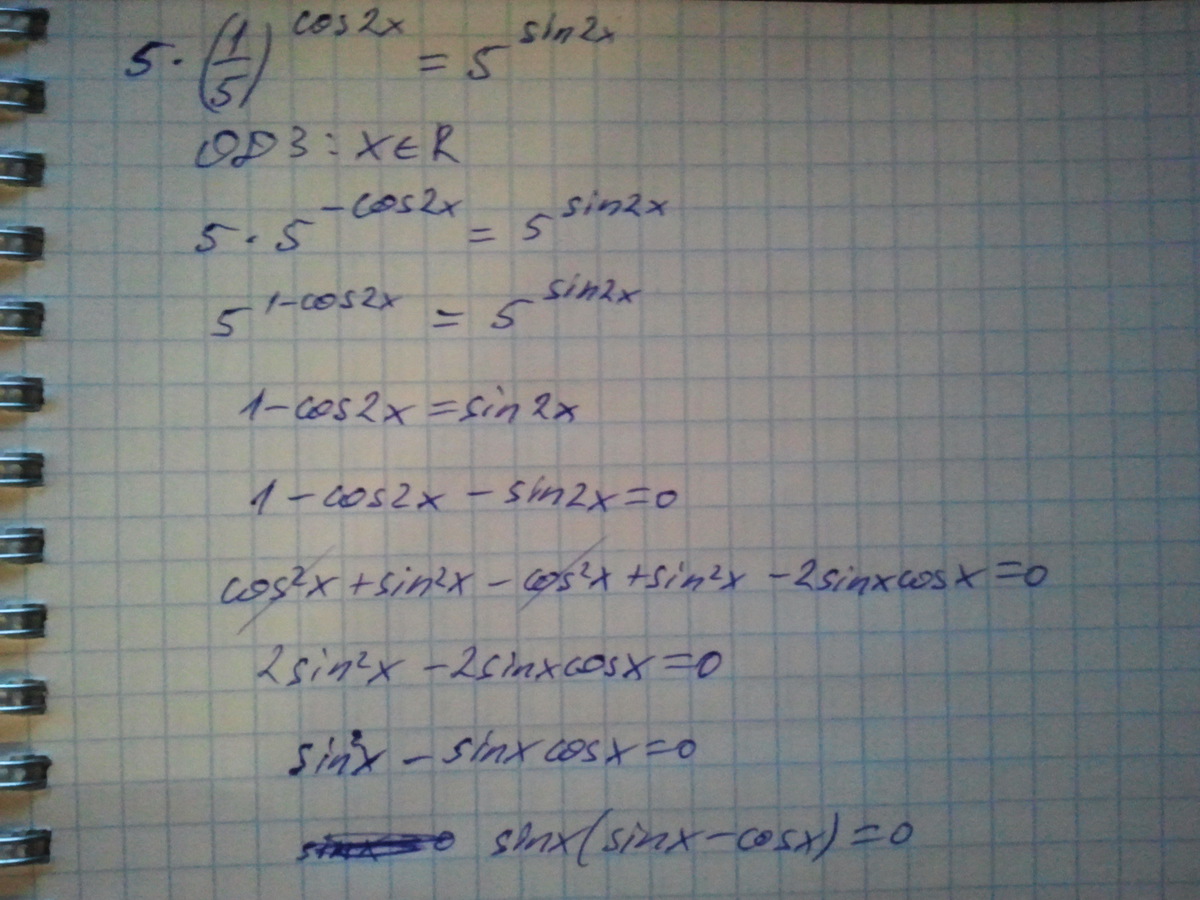 5 · (1/5)^cos2x = 5^sin2x
ОДЗ : x ∈ R
5 · 5^-cos2x = 5^sin2x
5^1-cos2x = 5^sin2x
1 - cos2x = sin2x
1 - cos2x - sin2x = 0
cos²x + sin²x - cos²x + sin²x - 2sinxcosx = 0
2sin²x - 2sinxcosx = 0
sin²x - sinxcosx = 0
sinx(sinx - cosx) = 0